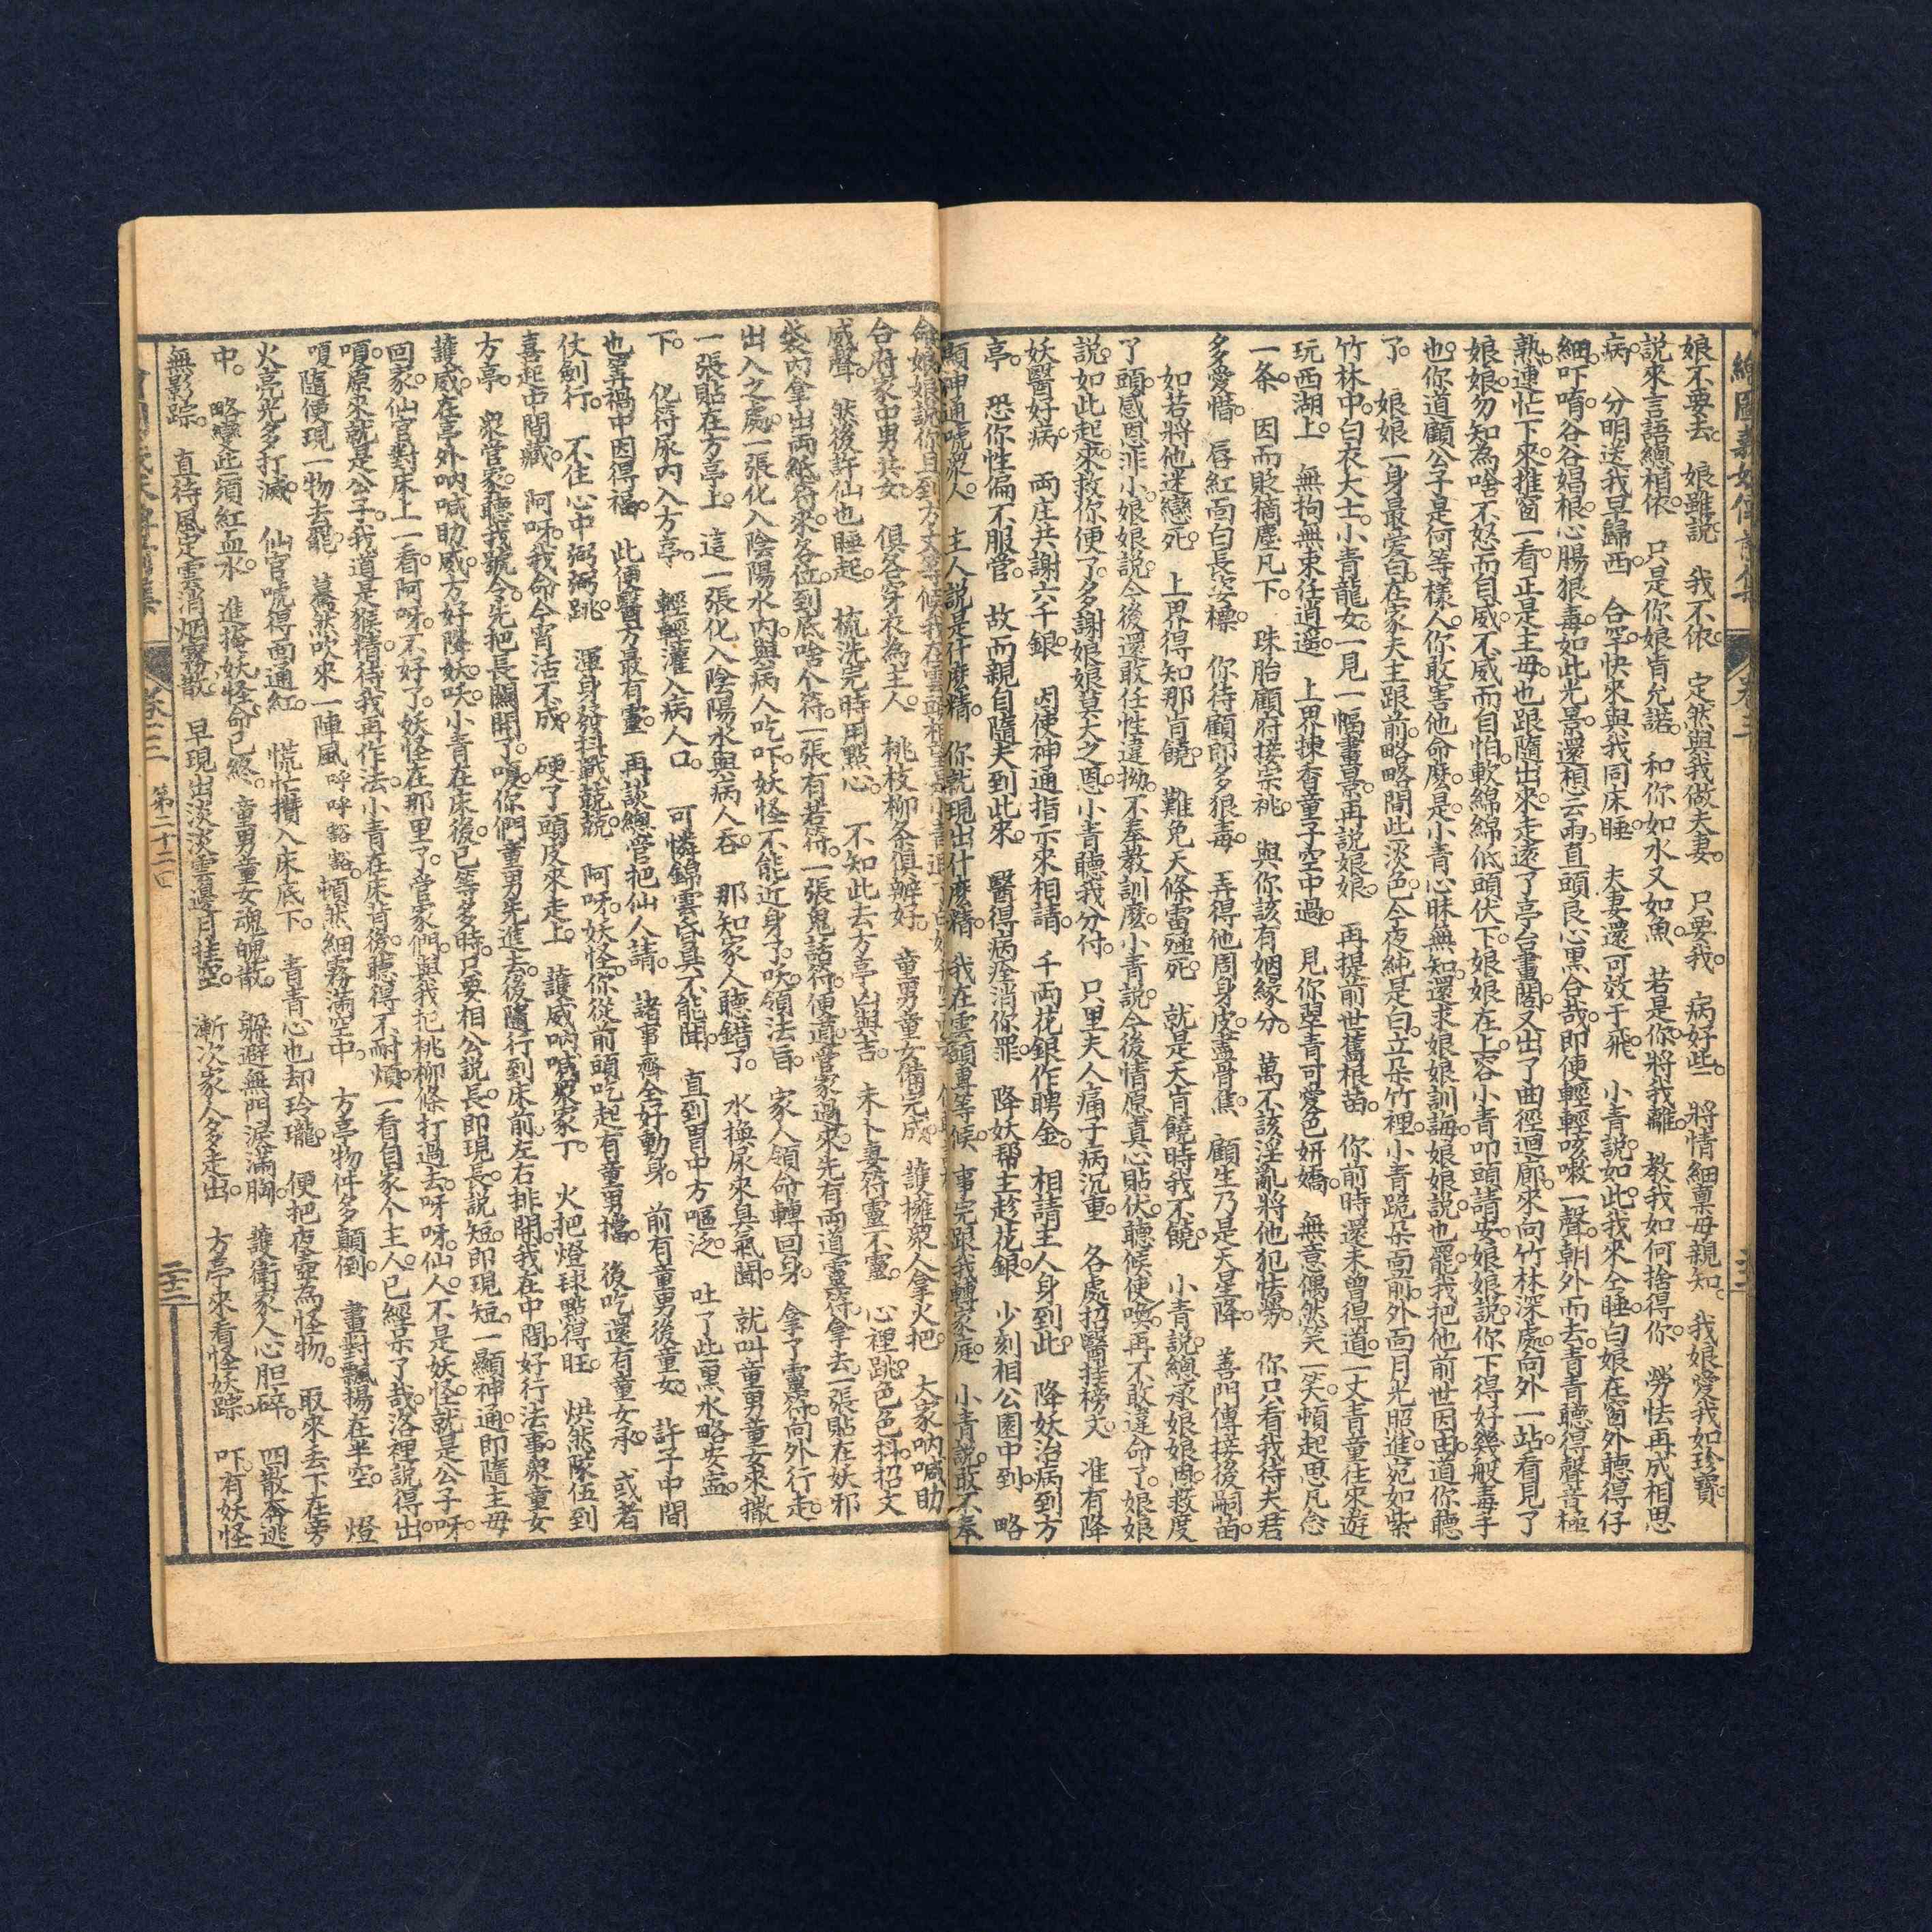 繪圖義妖傳前集 卷三
娘不要去。娘雖說 我不依。定然與我做夫妻。只要我 病好些。將情細稟母親知。我娘愛我如珍寶。
說來言語總相依。只是你娘肯允諾。和你如水又如魚。若是你將我離 教我如何捨得你 勞怯再成相思
病。分明送我早歸西。合罕快來與我同床睡 夫妻還可效于飛。小青說。如此。我來仝睡。白娘在窗外聽得仔
細。吓唷谷谷娼根。心腸狠毒。如此光景。還想云雨。直頭良心黑合哉。即使輕輕咳嗽一聲。朝外而去。青青聽得聲音極
熟。連忙下來。推窗一看。正是主母。也跟隨出來。走遠了亭台畫閣。又出了曲徑迴廊。來向竹林深處。向外一站。看見了
娘娘。勿知為啥不怒而自威。不威而自怕。軟綿綿低頭伏下。娘娘在上。容小青叩頭請安。娘娘說。你下得好幾般毒手
也。你道顧公子是何等樣人。你敢害他命麽。是。小青心昧無知。還求娘娘訓誨。娘娘說。也罷。我把他前世因由。道你聽
了。娘娘一身最愛白。在家夫主跟前。略略間此淡色。今夜純是白。立朵竹裡。小青跪朵面前。外面月光照進。宛如紫
竹林中。白衣大士。小青龍女。一見一幅畫景。再說娘娘 再提前世舊根苗。你前時還未曾得道。一丈青童往來遊
玩西湖上。無拘無束任逍遥。上界揀香童子空中過。見你翠青可愛色妍嬌。無意偶然笑一笑。頓起思凡念
一条。因而貶摘塵凡下。珠胎顧府接宗祧。與你該有姻緣分。萬不該淫亂將他犯怯勞。你只看我待夫君
多愛惜。唇紅面白長姿標。你待顧郎多狠毒。弄得他周身皮盡骨焦。顧生乃是天星降。善門傳接後嗣苗。
如若將他迷戀死。上界得知那肯饒。難免天條雷殛死 就是天肯饒時我不饒。小青說。總承娘娘恩救度
了頭。感恩非小。娘娘說。今後還敢任性違拗。不奉教訓麽。小青說。今後情愿真心貼伏。聽候使喚。再不敢違命了。娘娘
說。如此起來。救你便了。多謝娘娘莫大之恩。小青聽我分付。只里夫人痛子病沉重。各處招醫挂榜文。准有降
妖醫好病。兩庄共謝六千銀。因使神通指示來相請。千両花銀作聘金。相請主人身到此。降妖治病到方
亭。恐你性偏不服管。故而親自隨夫到此來。醫得病痊消你罪。降妖帮主趁花銀。少刻相公園中到。略
顯神通唬衆人。主人說是什麽精。你就現出什麽精。我在雲頭專等候。事完跟我轉家庭。小青說。敢不奉
合府家中男共女。俱各穿衣為主人。桃枝柳条俱辦好。童男童女備完成。護擁衆人拿火把。大家吶喊助
威聲。然後許仙也睡起。梳洗完時用點心。不知此去方亭凶與吉。未卜妻符靈不靈。心裡跳。色色抖。招文
袋內拿出両紙符。來各位。到底啥个符。一張有若符。一張鬼話符。便道。管家過來。先有両道靈符。拿去。一張貼在妖邪
出入之處。一張化入陰陽水內。與病人吃。吓。妖怪不能近身子。吷。領法旨。家人領命轉回身。拿了靈符向外行走。
一張貼在方亭上。這一張化入陰陽水與病人吞。那知家人聽錯了。水換尿來臭氣聞。就叫童男童女來撒
下。化符尿內入方亭。輕輕灌入病人口。可憐錦雲昏臭不能聞。直到胃中方嘔泛 吐了此黑水略安寍。
也算禍中因得福。此便醫方最有靈。再談總管把仙人請。諸事齊全好動身。前有童男後童女。許子中間
仗劍行。不住心中弼弼跳 渾身發抖戰兢兢 阿呀。妖怪。你從前頭吃起有童男擋。後吃還有童女承。或者
喜起中間藏。阿呀。我命今宵活不成 硬了頭皮來走上。護威吶喊衆家丁。火把燈球點得旺。烘然隊伍到
方亭。衆管家聽我號令。先把長闗開了。嗄。你們童男先進去。後隨行到床前。左右排開。我在中間。好行法事。衆童女
護威。在亭外吶喊助威。方好降妖。吷。小青在床後。已等多時。只要相公說。長即現長。說短即現短。一顯神通。即隨主母
回家。仙官對床上一看。阿呀。不好了。妖怪在那里了。管家們。與我把桃柳條打過去。呀呀。仙人。不是妖怪。就是公子呀。
嗄。原來就是公子。我道是猴精。待我再作法。小青在床背後。聽得不耐煩。一看自家个主人。已經呆了哉。洛裡說得出。
嗄。隨便現一物去罷。驀然吹來一陣風 呼呼豁豁。頓然細霧滿空中。方亭物件多顛倒。畫對飄揚在半空。燈
火亮光多打滅。仙官唬得面通紅。慌忙攢入床底下。青青心也却玲瓏。便把夜壺為怪物。取來丢下在旁
中。略變此須紅血水。進掩妖怪命已終。童男童女魂魄散。躲避無門淚滿胸。護衛家人心胆碎。四散奔逃
無影踪。直待風定雲消烟霧散 早現出淡淡雲邊月挂空。漸次家人多走出 方亭來看怪妖踪。吓。有妖怪
卷三 第二十二囘 二十二